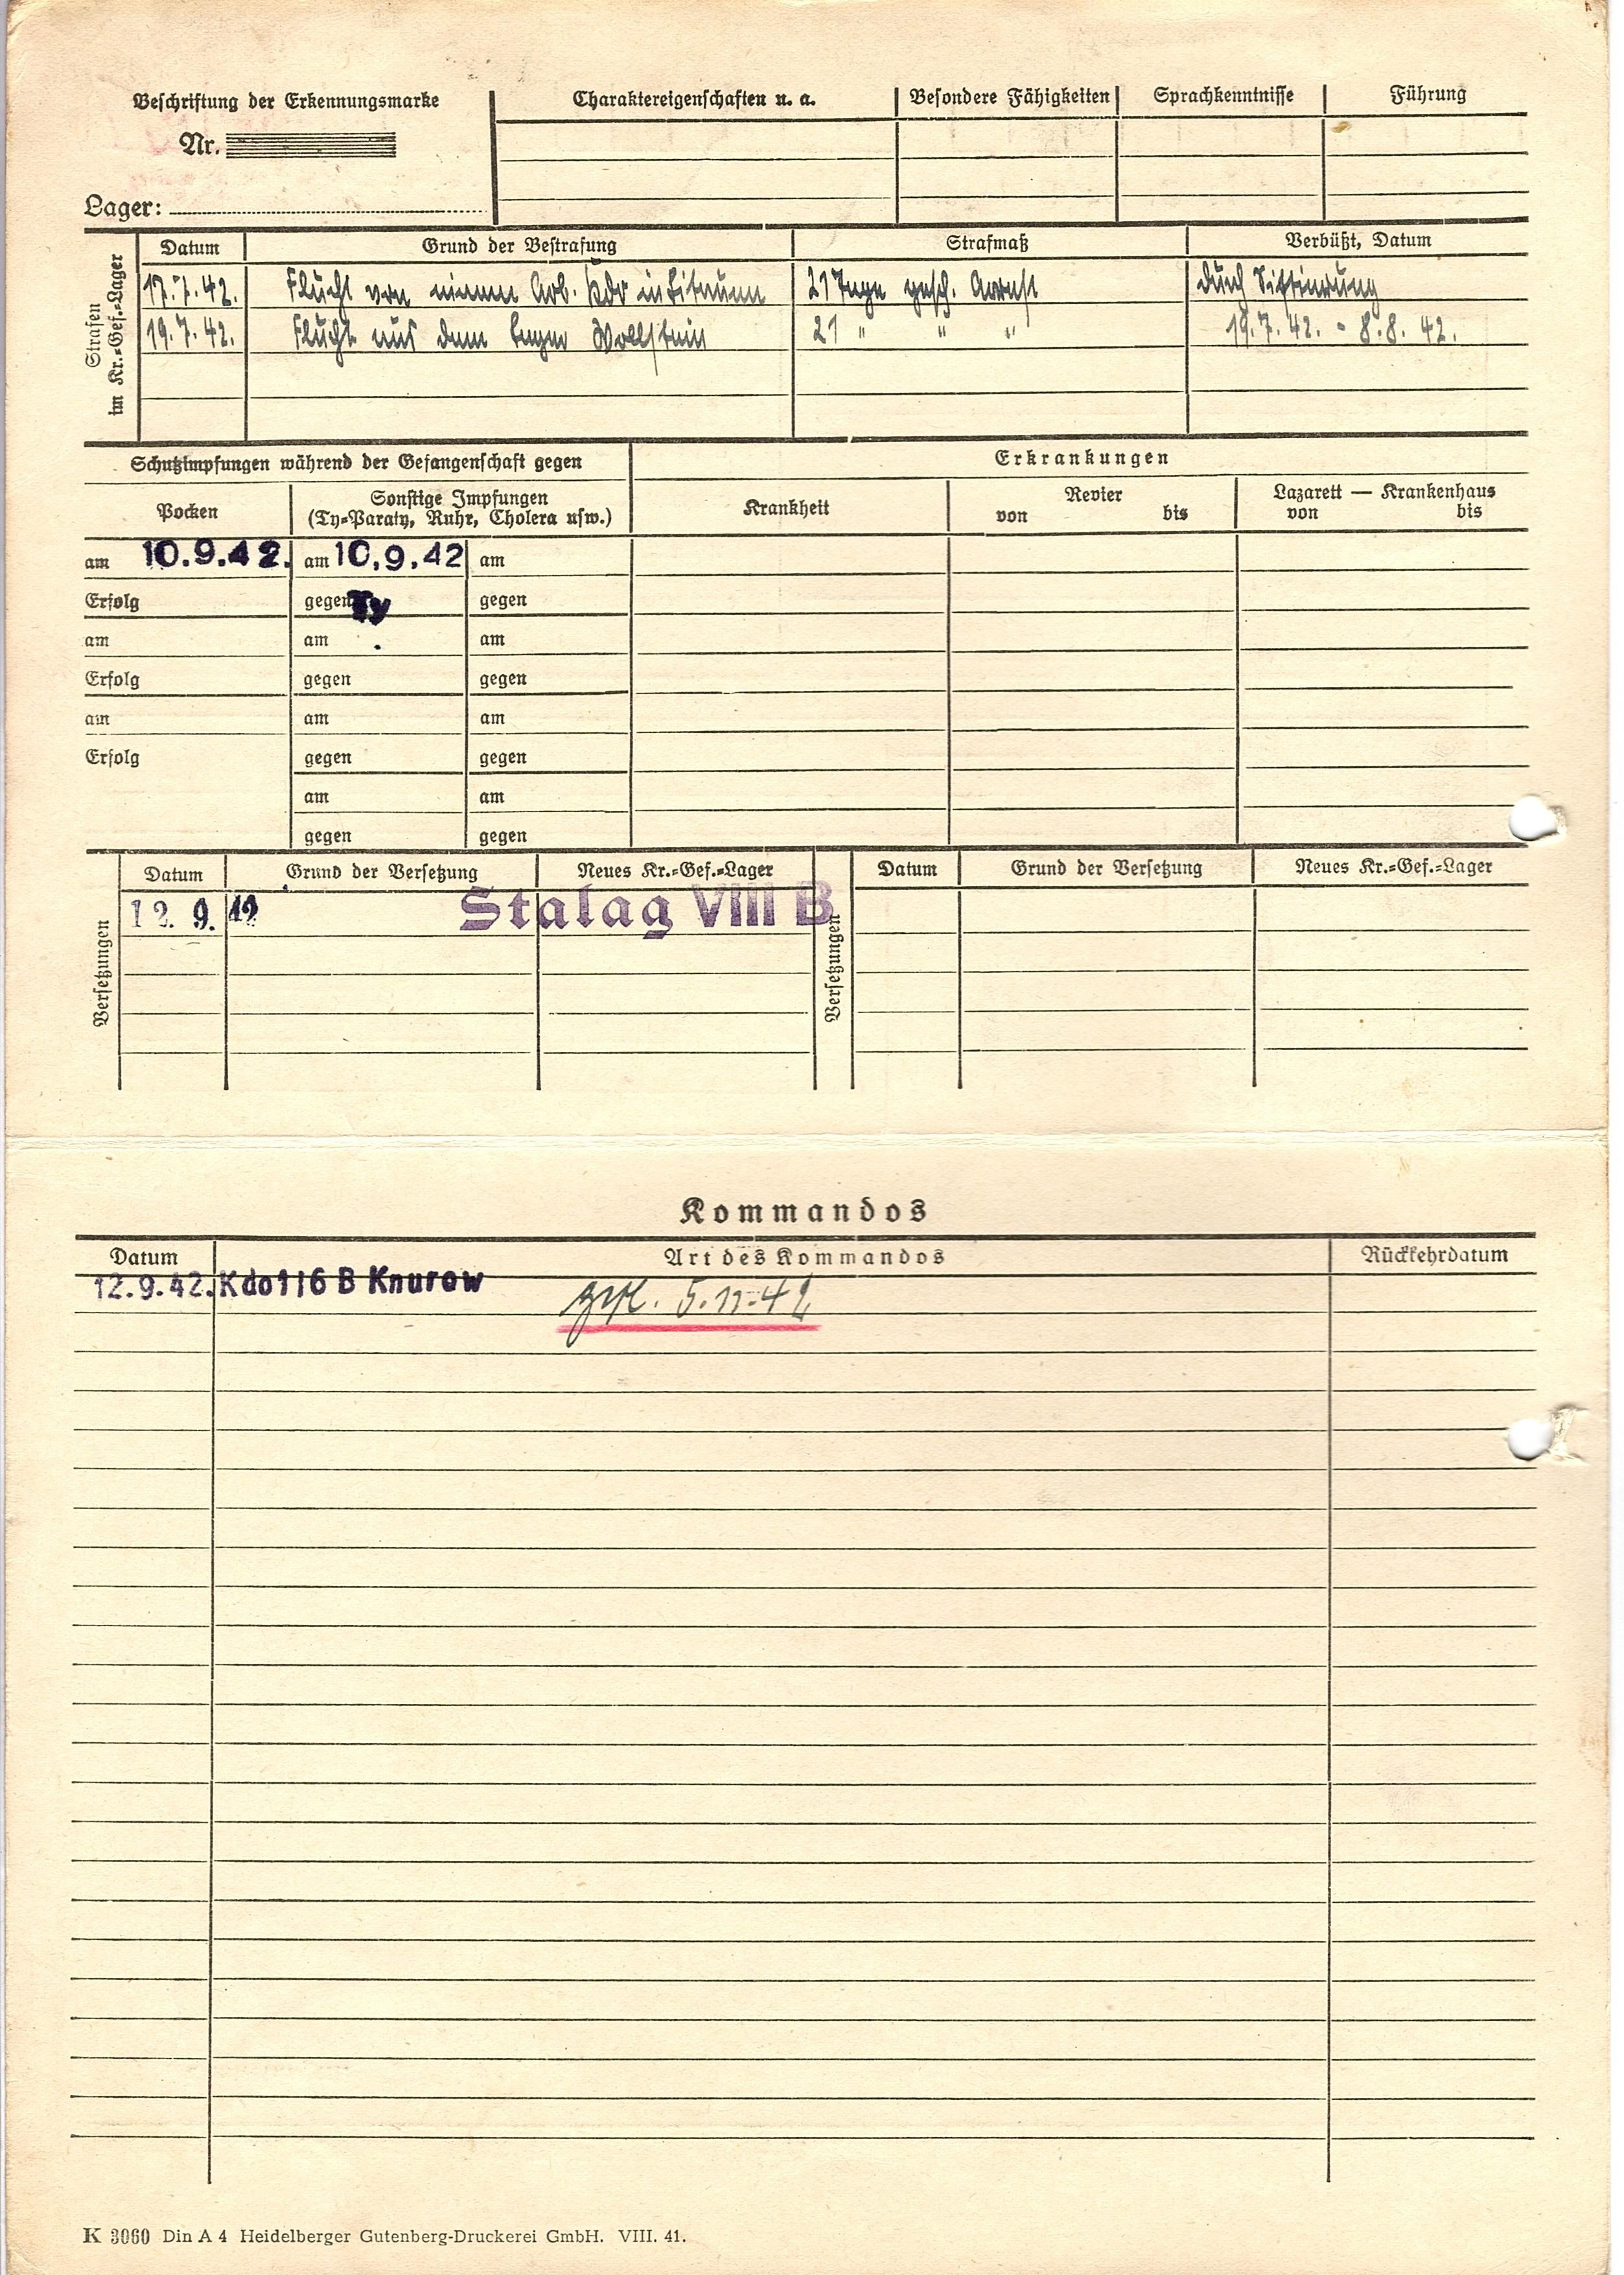 Beschriftung der Erkennungsmarke
Nr.
Lager:
Charaktereigenschaften u. a. Besondere Fähigkeiten Sprachkenntnisse Führung
Strafen
im Kr.=Gef.=Lager
Datum Grund der Bestrafung Strafmaß Verbüßt, Datum
17.7.42. Flucht von einem Arb. Kdo in 21 Tage gesch. Arrest durch
19.7.42. Flucht aus dem Lager Wollstein 21 " " " 19.7.42. - 8.8.42.
Schutzimpfungen während der Gefangenschaft gegen Erkrankungen
Pocken Sonstige Impfungen
(Ty=Paraty, Ruhr, Cholera usw.)
Krankheit Revier
von bis
Lazarett — Krankenhaus
von bis
am 10.9.42. am 10.9.42 am
Erfolg gegen Ty gegen
am am am
Erfolg gegen gegen
am am am
Erfolg gegen gegen
am am
gegen gegen
Versetzungen
Datum Grund der Versetzung Neues Kr.=Gef.=Lager
12. 9. 42 Stalag VIII B
Versetzungen
Datum Grund der Versetzung Neues Kr.=Gef.=Lager
Kommandos
Datum Art des Kommandos Rückkehrdatum
12.9.42. Kdo 116 B Knurow
5.11.42
K 3060 Din A 4 Heidelberger Gutenberg-Druckerei GmbH. VIII. 41.